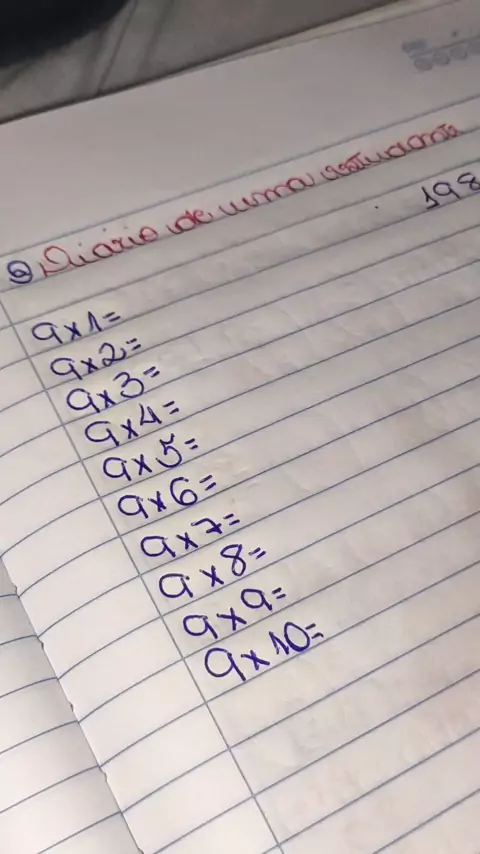 @Diário de uma estudante
198
9x1=
9x2=
9x3=
9x4=
9x5=
9x6=
9x7=
9x8=
9x9=
9x10=